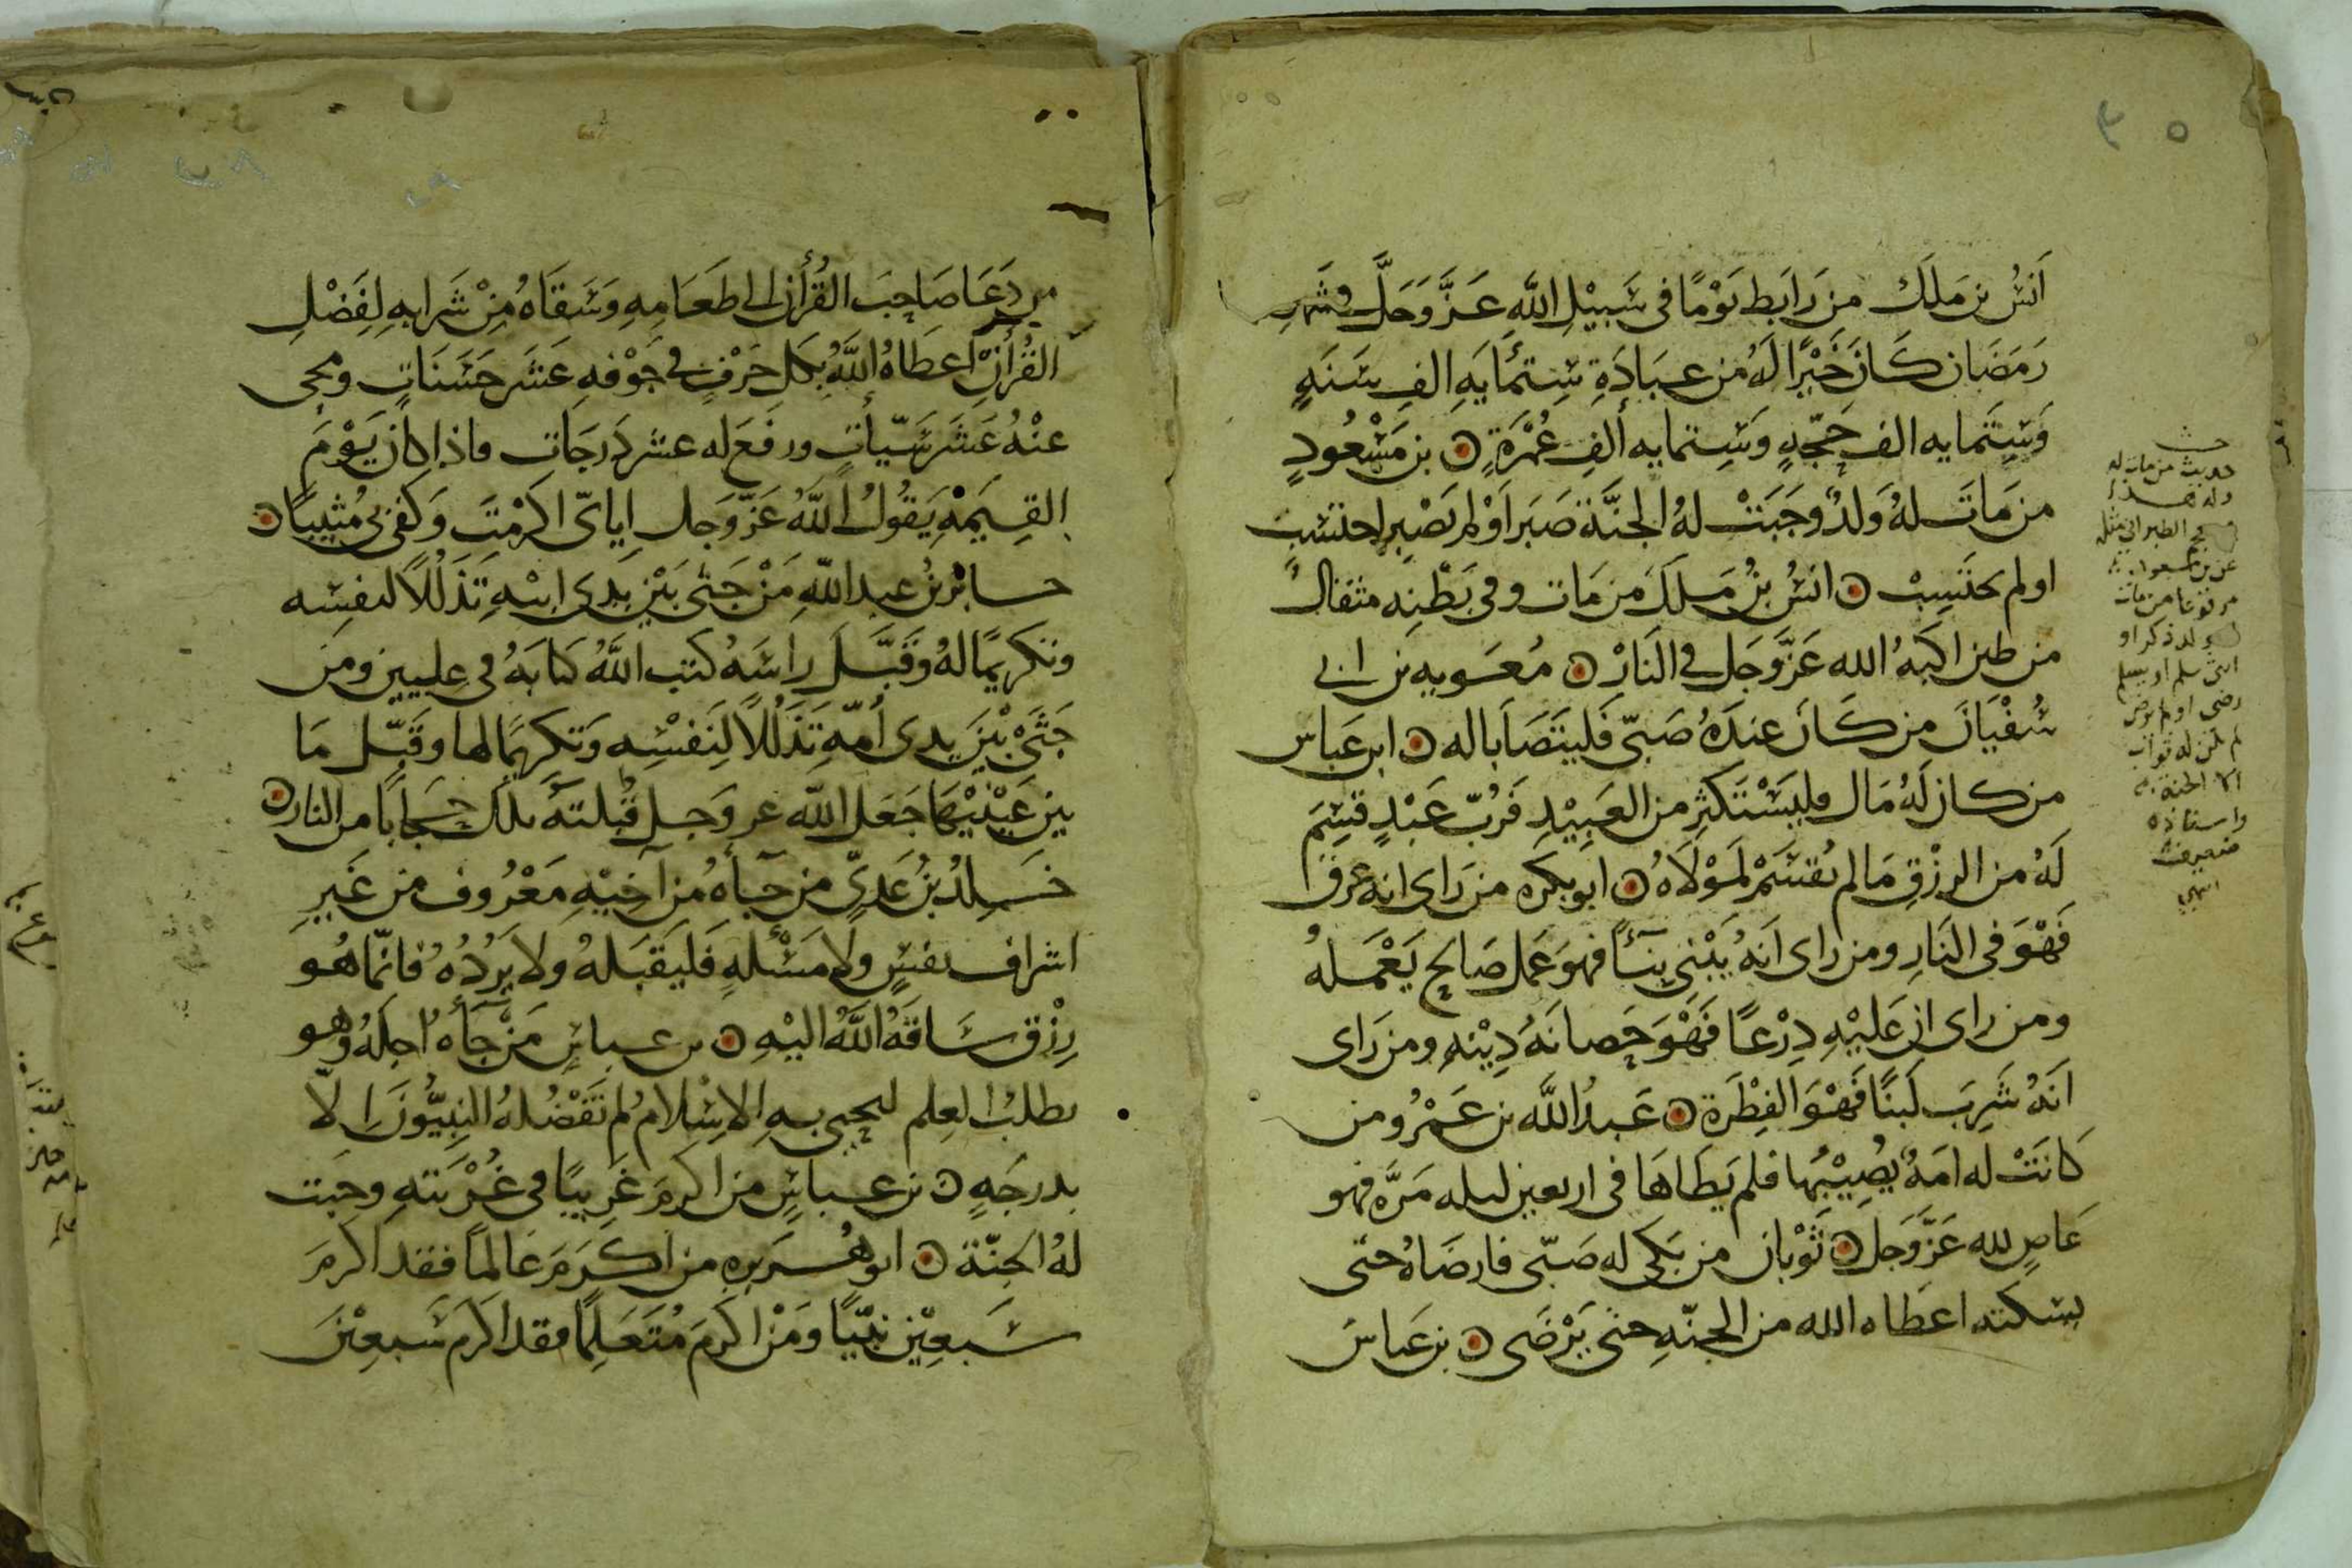 أنس بن ملك من رابط يوما في سبيل الله عز وجل في شهر
رمضان كان خيرا له من عبادة ستمايه الف سنه
وستمايه الف حجه وستمايه ألف عمرة ن بن مسعود
من مات له ولد وجبت له الجنة صبر او لم يصبر احتسب
او لم يحتسب ن انس بن ملك من مات وفي بطنه مثقال
من طين اكبه الله عز وجل في النار ن معويه بن ابي
سفيان من كان عنده صبي فليتصابا له ن ابن عباس
من كان له مال فليستكثر من العبيد فرب عبد قسم
له من الرزق ما لم يقسم لمولاه ن ابو بكره من راى انه عرق
فهو في النار ومن راى انه يبني بنآء فهو عمل صالح يعمله
ومن راى ان عليه درعا فهو حصانه دينه ومن راى
انه شرب لبنا فهو الفطرة ن عبد الله بن عمرو من
كانت له امة يصيبها فلم يطاها في اربعين ليله مره فهو
عاص لله عز وجل ن ثوبان من بكى له صبي فارضاه حتى
يسكته اعطاه الله من الجنه حتى يرضى ن بن عباس
حديث من مات له
ولد
الطبراني مثله
عن بن مسعود
مرفوعا من مات
له ولد ذكر او
انثى سلم او لم يسلم
رضى او لم يرض
لم يكن له ثواب
الا الجنة
واسناده
ضعيف
انتهى
من دعا صاحب القرأن الى طعامه وسقاه من شرابه لفضل
القرأن اعطاه الله بكل حرف في جوفه عشر حسنات ومحى
عنه عشر سيأت ورفع له عشر درجات فاذا كان يوم
القيمة يقول الله عز وجل اياى اكرمت وكفى بي مثيبا ن
جابر بن عبد الله من جثى بين يدى ابيه تذللا لنفسه
وتكريما له وقبل راسه كتب الله كتابه في عليين ومن
جثى بين يدى أمه تذللا لنفسه وتكريما لها وقبل ما
بين عينيها جعل الله عز وجل قبلته تلك حجابا من النار ن
خلد بن عدي من جآه من أخيه معروف من غير
اشراف نفس ولا مسئله فليقبله ولا يرده فانما هو
رزق ساقه الله اليه ن بن عباس من جآه اجله وهو
يطلب العلم ليحيي به الاسلام لم تفضله النبيون الا
بدرجه ن بن عباس من اكرم غريبا في غربته وجبت
له الجنة ن ابو هريره من اكرم عالما فقد اكرم
سبعين نبيا ومن اكرم متعلما فقد اكرم سبعين